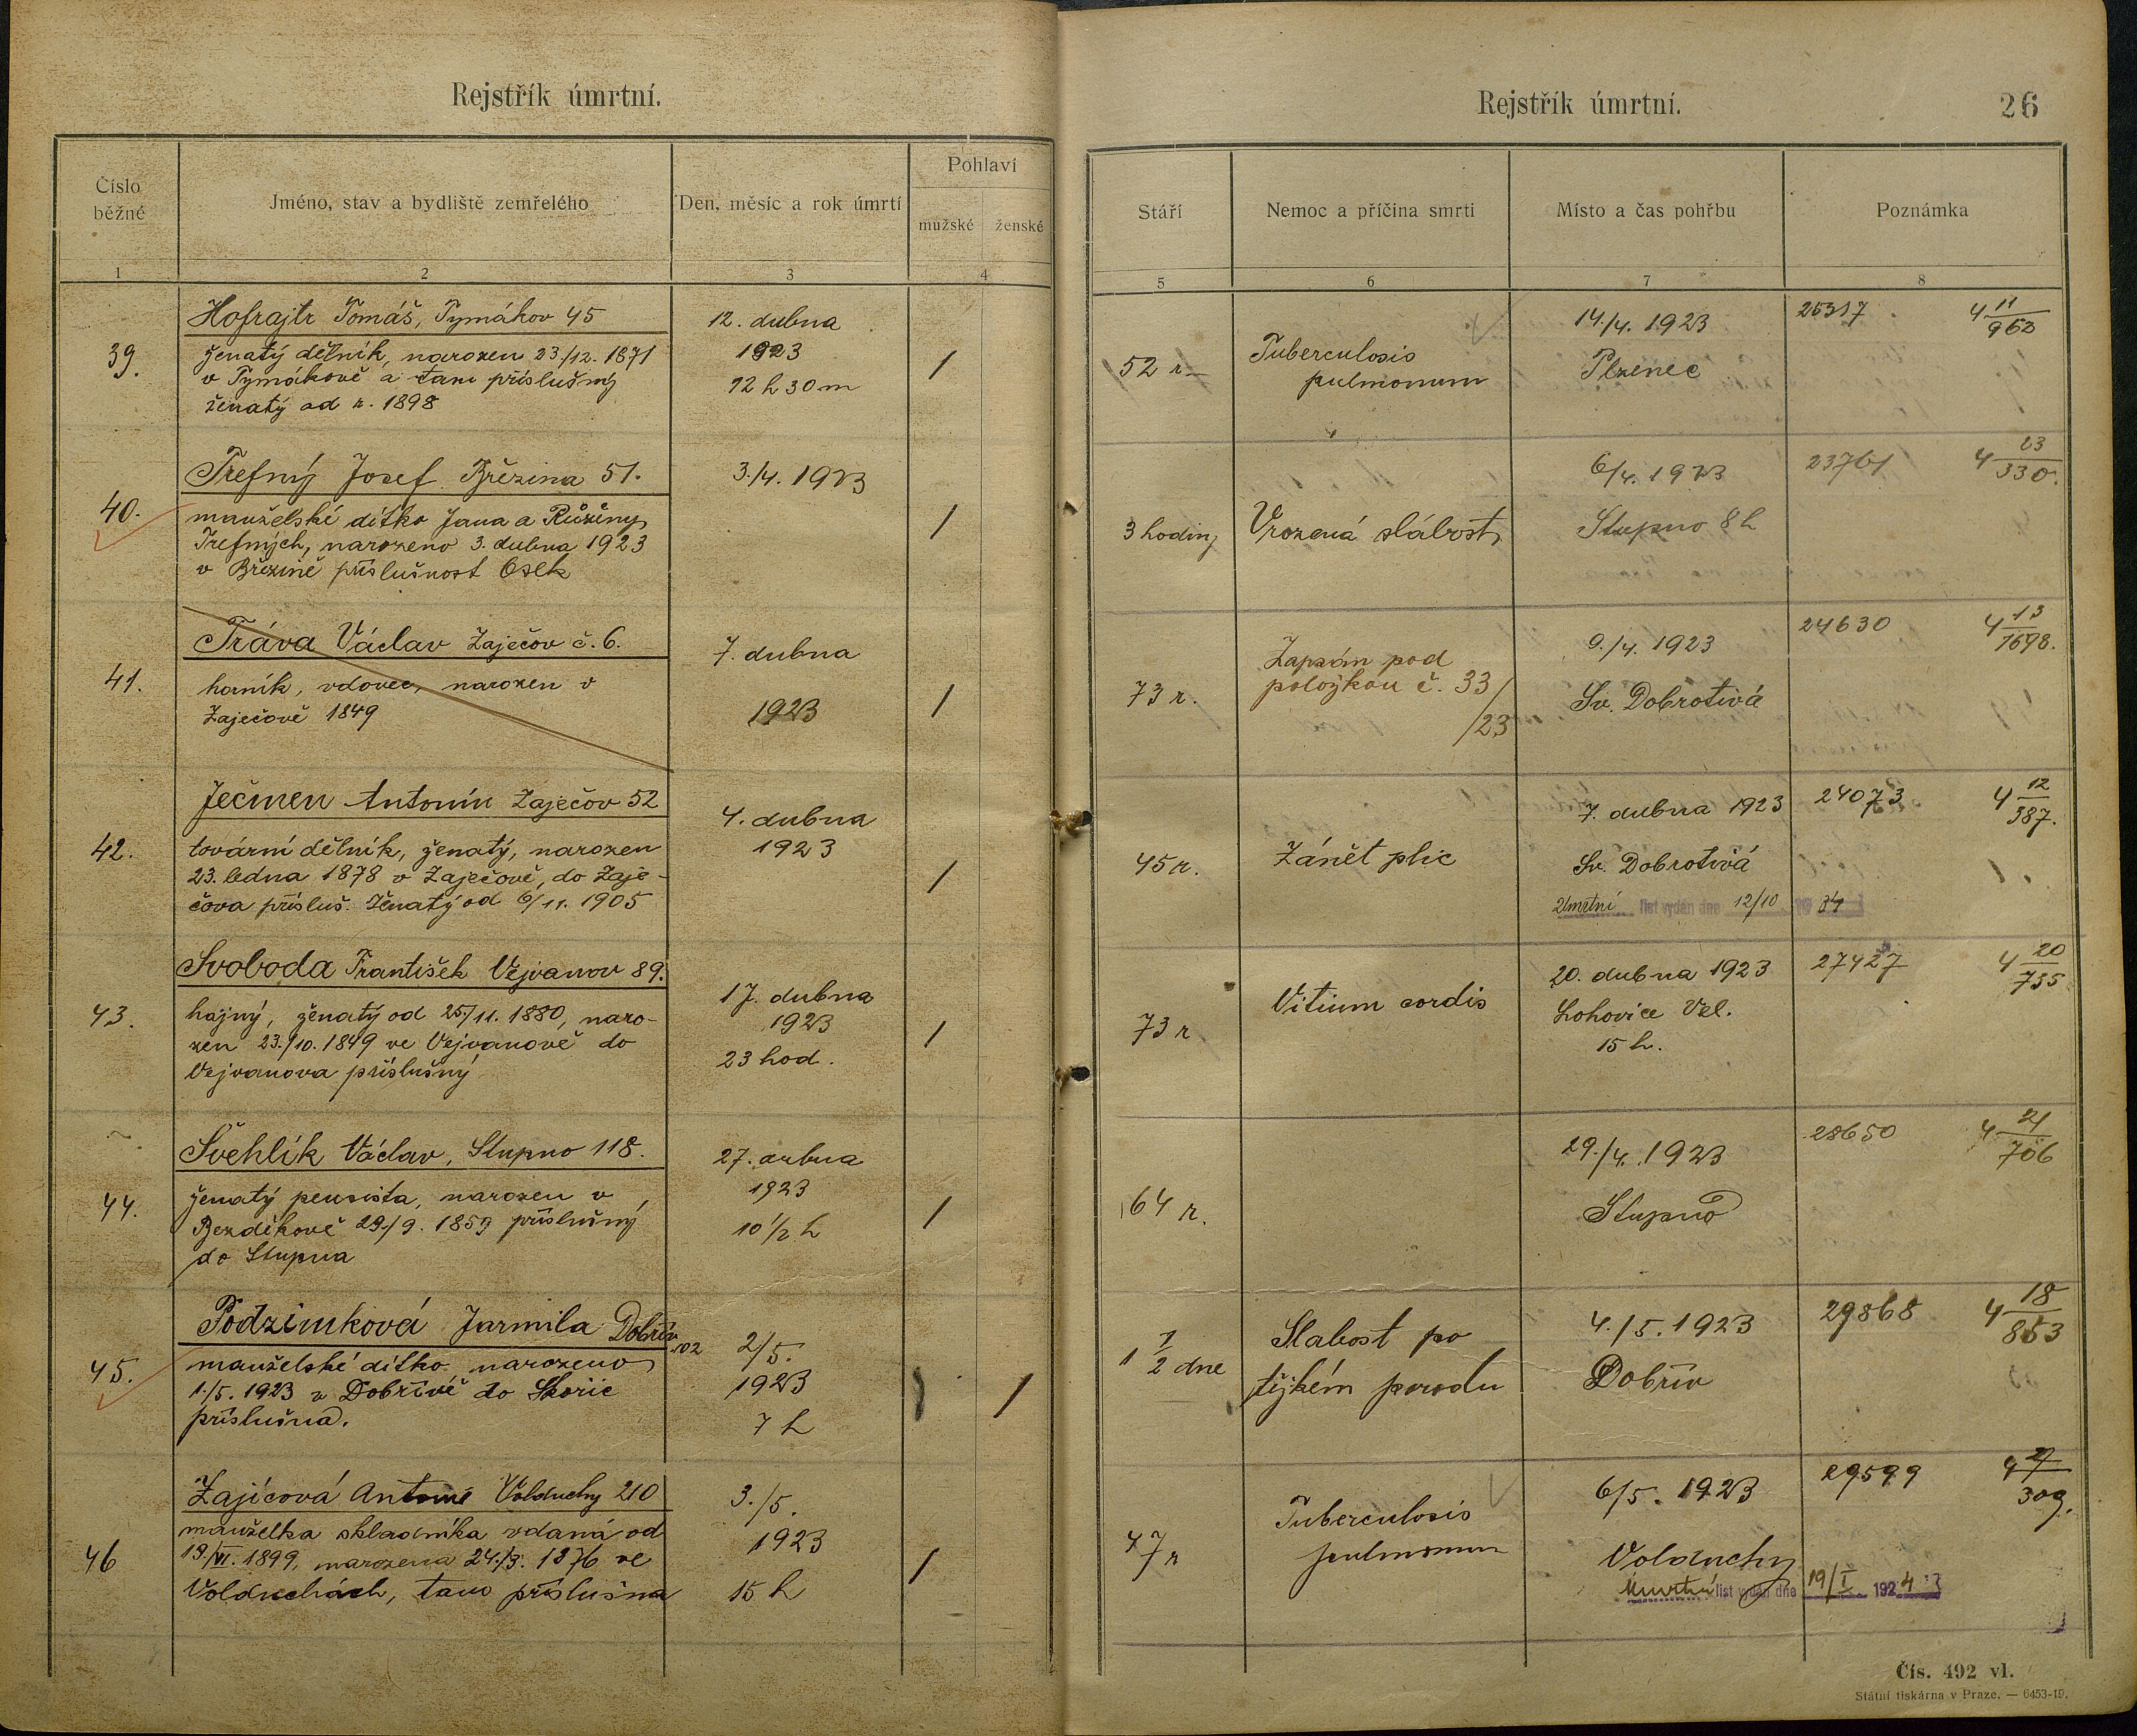 Rejstřík úmrtní.
Číslo běžné
Jméno, stav a bydliště zemřelého
Den, měsíc a rok úmrtí
Pohlaví
mužské
ženské
1
2
3
4
39.
Hofrajtr Tomáš, Tymákov 45
ženatý dělník, narozen 23./12. 1871
v Tymákově a tam příslušný
ženatý od r. 1898
12. dubna
1923
12 h 30 m
/
40.
Trefný Josef Březina 51.
manželské dítko Jana a Růženy
Trefných, narozeno 3. dubna 1923
v Březině příslušnost Osek
3./4. 1923
/
41.
Tráva Václav Zaječov č. 6.
horník, vdovec, narozen v
Zaječově 1849
7. dubna
1923
/
42.
Ječmen Antonín Zaječov 52
tovární dělník, ženatý, narozen
23. ledna 1878 v Zaječově, do Zaje-
čova přísluš. Ženatý od 6/11. 1905
4. dubna
1923
/
43.
Svoboda František Vejvanov 89.
hajný, ženatý od 25./11. 1880, naro-
zen 23./10. 1849 ve Vejvanově do
Vejvanova příslušný
17. dubna
1923
23 hod.
/
44.
Švehlík Václav, Stupno 118.
ženatý pensista, narozen v
Bezděkově 29./9. 1859 příslušný
do Stupna
27. dubna
1923
10 1/2 h
/
45.
Podzimková Jarmila Dobřív
102
manželské dítko narozeno
1./5. 1923 v Dobřívě do Skořic
příslušná.
2/5.
1923
7 h
/
46
Zajícová Antonie Volduchy 210
manželka skladníka vdaná od
19./VI. 1899, narozena 24./3. 1876 ve
Volduchách, tam příslušna
3./5.
1923
15 h
/
Rejstřík úmrtní.
26
Stáří
Nemoc a příčina smrti
Místo a čas pohřbu
Poznámka
5
6
7
8
52 r.
Tuberculosis
pulmonum
14./4. 1923
Plzenec
25317
4 11/962
3 hodiny
Vrozená slabost
6/4. 1923
Stupno 8 h
23761
4 23/330.
73 r.
Zapsán pod
položkou č. 33/
/23
9./4. 1923
Sv. Dobrotivá
24630
4 13/1698.
45 r.
Zánět plic
7. dubna 1923
Sv. Dobrotivá
Úmrtní list vydán dne 12/10 19 34
24073
4 12/387.
73 r
Vitium cordis
20. dubna 1923
Lohovice Vel.
15 h.
27427
4 20/735
64 r.
29./4. 1923
Stupno
28650
4 21/706
1 1/2 dne
Slabost po
těžkém porodu
4./5. 1923
Dobřív
29868
4 18/853
47 r
Tuberculosis
pulmonum
6/5. 1923
Volduchy
Úmrtní list vydán dne 19/I 1924
29599
309.
Čís. 492 vl.
Státní tiskárna v Praze. — 6453-19.